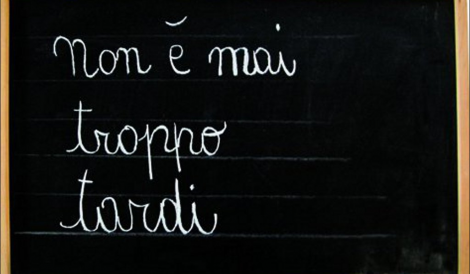 Non ĕ mai
troppo
tardi